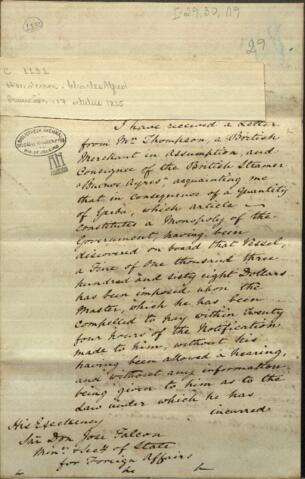 I-29,30,119
29
C 1131
Henderson, Charles Alfred
Asunción, 17 octubre 1855
I have received a Letter
from Mr. Thompson, a British
Merchant in Assumption, and
Consignee of the British Steamer
"Buenos Ayres", acquainting me
that in consequence of a Quantity
of Yerba, which article
Constitutes a Monopoly of the
Government, having been
discovered on board that Vessel,
a Fine of One thousand three
hundred and sixty eight Dollars
has been imposed upon the
Master, which he has been
Compelled to pay within Twenty
four hours of the Notification
made to him, without his
having been allowed a hearing,
and without any information
being given to him as to the
Law under which he has
incurred
His Excellency
Don Jose Falcon
Minr. & Secy. of State
for Foreign Affairs